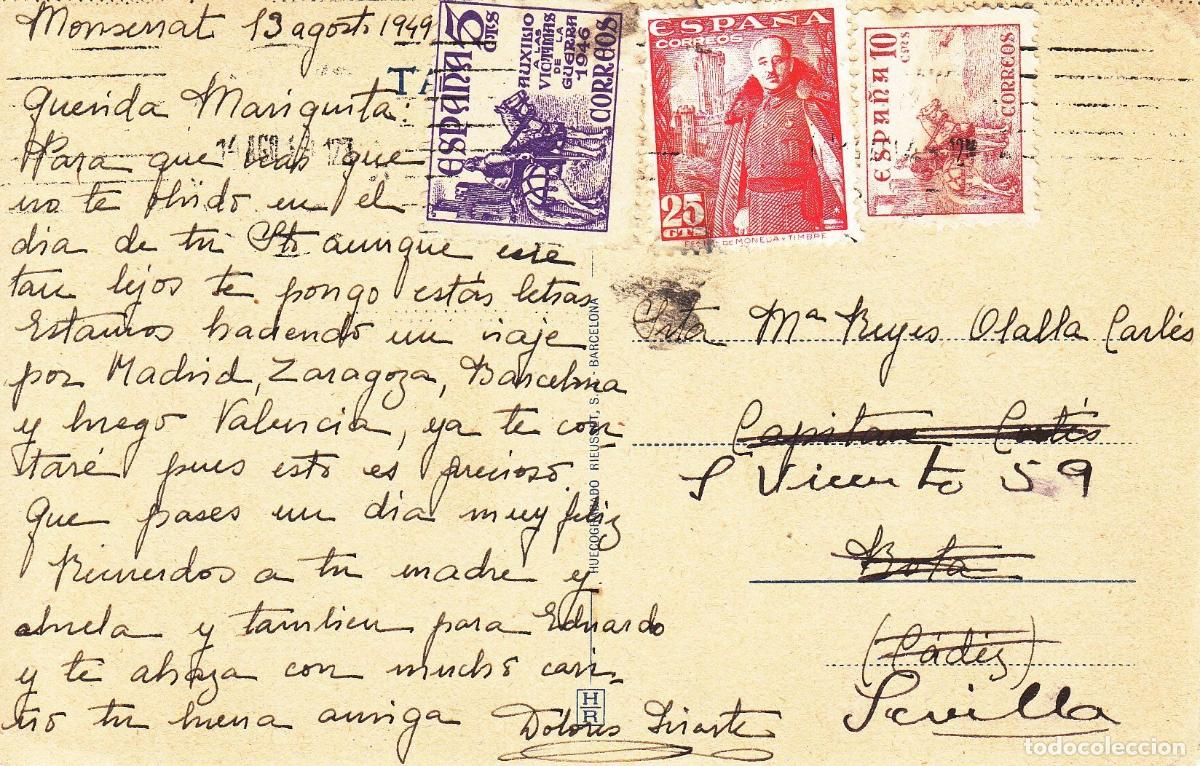 Monserrat 13 agosto 1949
Querida Mariquita:
Para que veas que
no te olvido en el
dia de tu Sto aunque este
tan lejos te pongo estás letras
Estamos haciendo un viaje
por Madrid, Zaragoza, Barcelona
y luego Valencia, ya te con
taré pues esto es precioso.
Que pases un dia muy feliz
Recuerdos a tu madre y
abuela y tambien para Eduardo
y te abraza con mucho cari-
ño tu buena amiga Dolores Iriarte
ESPAÑA 5 CTS
AUXILIO
A LAS
VICTIMAS
DE LA
GUERRA
1946
CORREOS
ESPAÑA
CORREOS
25
CTS
ESPAÑA 10
CTS
CORREOS
HUECOGRABADO RIEUSSET, S. A. BARCELONA
HR
Srta Mª Reyes Olalla Carlés
Capitan Cortés
S Vicente 59
Rota
(Cádiz)
Sevilla
todocoleccion